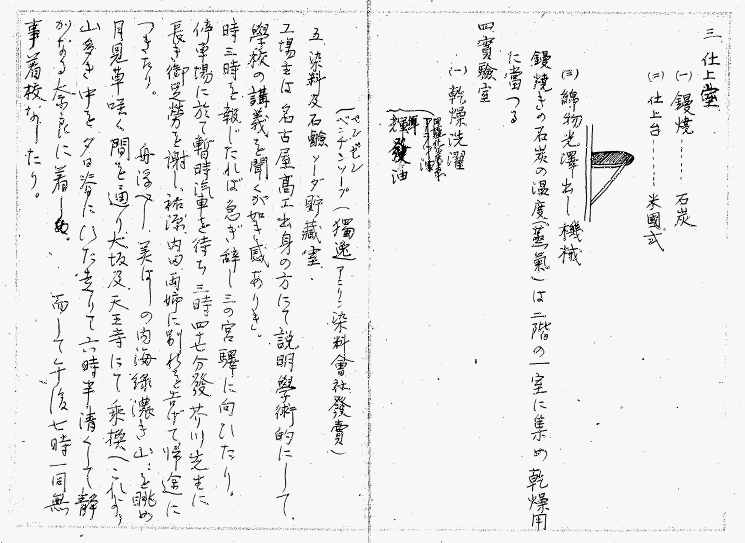 三 仕上室
(一) 鏝焼……石炭
(二) 仕上台……米國式
(三) 綿物光澤出し機械
鏝焼きの石炭の温度(蒸氣)は二階の一室に集め乾燥用
に當つる
四 實驗室
(一) 乾燥洗濯
揮發油
ベンゼン
ベンヂンソープ (獨逸アニリン染料會社發賣)
五 染料及石鹼ソーダ貯藏室.
工場主は名古屋高工出身の方にて説明學術的にして
學校の講義を聞くが如き感ありき。
時三時を報じたれば急ぎ辞し三の宮驛に向ひたり。
停車場に於て暫時汽車を待ち三時四十七分發芥川先生に
長き御苦勞を謝し 内田両姉に別れを告げて帰途に
つきたり。 舟浮べし美はしの内海緑濃き山々を眺め
月見草咲く間を通り大坂及天王寺にて乗換へこれより
山多き中を夕日 にひた走りて六時半清くして静
かなる奈良に着しぬ。 而して午後七時一同無
事着校なしたり。